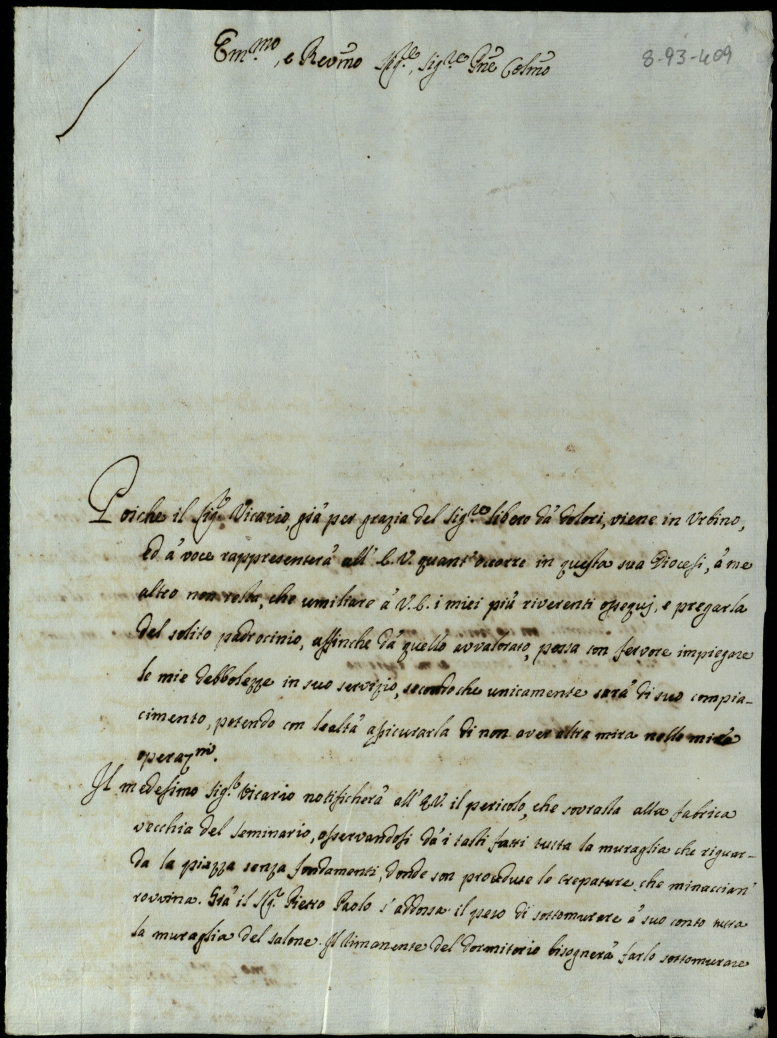 Em.mo, e Reumo Sig.re, Sig.re Pñe Colmo
8-93-409
Poiche il Sig.r Vicario, già per grazia del Sig.re libero dà dolori, viene in Urbino,
ed à voce rappresenterà all' E.V. quant' occorre in questa sua Diocesi, à me
altro non resta, che umiliare à V.E. i miei più riverenti ossequj, e pregarla
del solito padrocinio, affinche dà quello avvalorato, possa con fervore impiegare
le mie debbolezze in suo servizio, secondo che unicamente sarà di suo compia-
cimento, potendo con lealtà assicurarla di non aver altra mira nelle mie
operaz.ni.
Il medesimo Sig.r Vicario notificherà all' E.V. il pericolo, che sovrasta alla fabrica
vecchia del Seminario, osservandosi dà i tasti fatti tutta la muraglia che riguar-
da la piazza senza fondamenti, donde son procedute le crepature, che minaccian'
rovvina. Già il Sig.r Pietro Paolo s'addossa il peso di sottomurare à suo conto tutta
la muraglia del salone. Il rimanente del dormitorio bisognerà farlo sottomurare